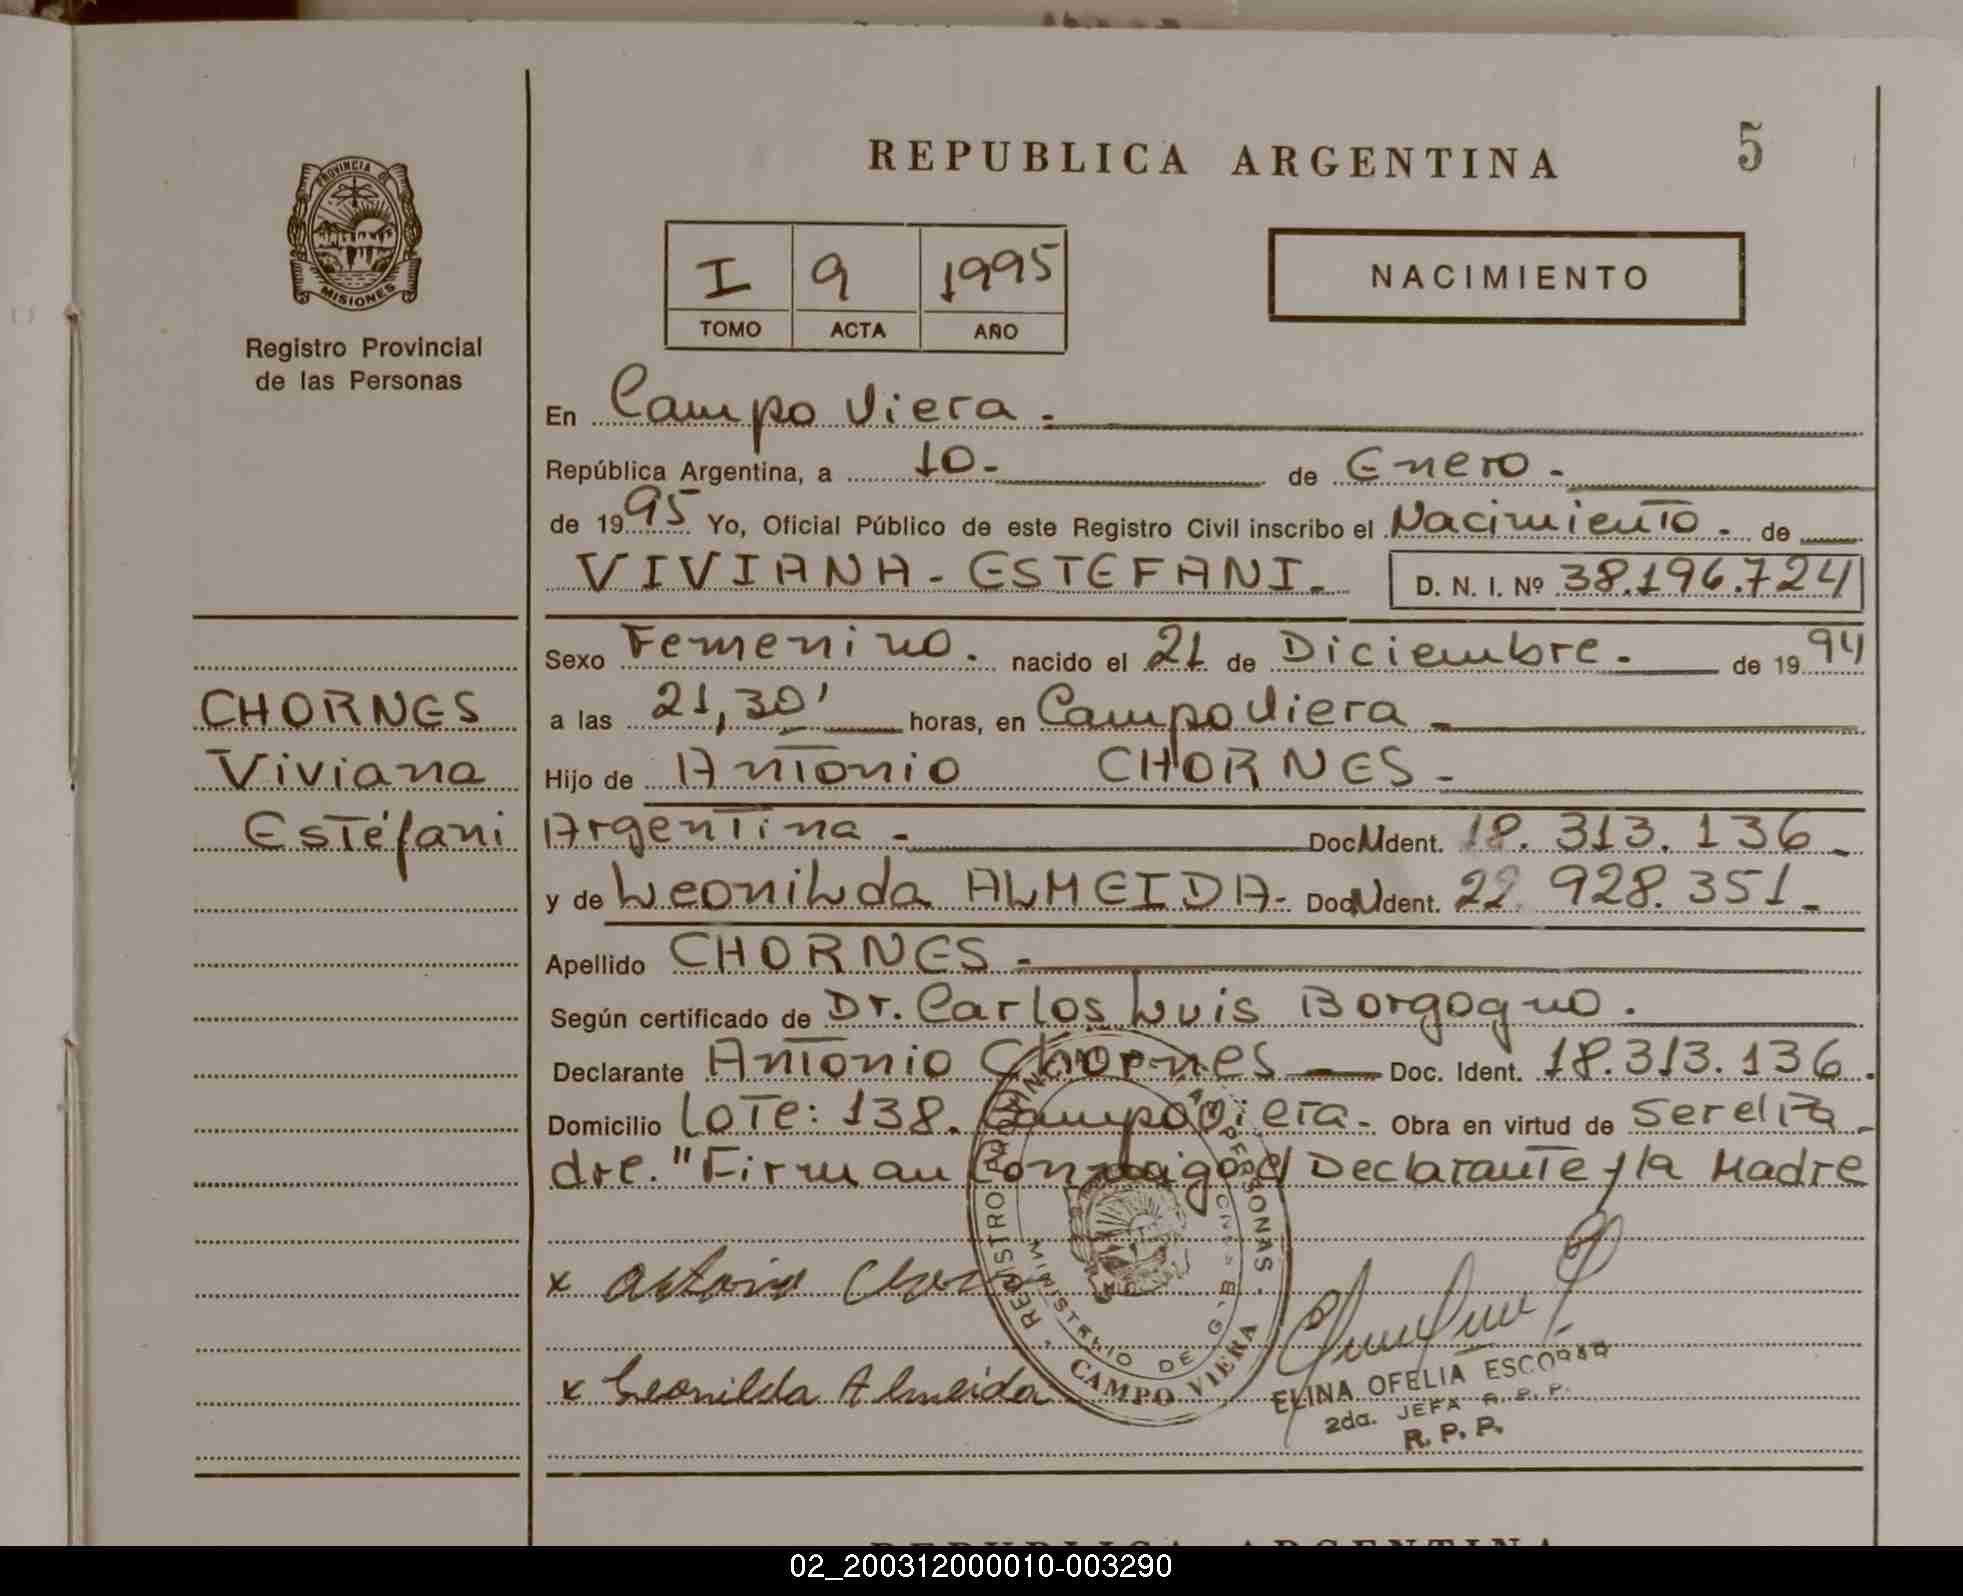 REPUBLICA ARGENTINA
5
PROVINCIA DE
MISIONES
Registro Provincial
de las Personas
I 9 1995
TOMO ACTA AÑO
NACIMIENTO
En Campo Viera.
República Argentina, a 10- de Enero.
de 1995 Yo, Oficial Público de este Registro Civil inscribo el Nacimiento. de
VIVIANA-ESTEFANI. D. N. I. Nº 38.196.724
Sexo Femenino. nacido el 21 de Diciembre. de 1994
a las 21,30' horas, en Campo Viera
Hijo de Antonio CHORNES-
Argentina. Doc. Ident. 18.313.136
y de Leonilda ALMEIDA- Doc. Ident. 22.928.351
Apellido CHORNES
Según certificado de Dr. Carlos Luis Borgogno.
Declarante Antonio Chornes Doc. Ident. 18.313.136.
Domicilio Lote: 138. Campo Viera. Obra en virtud de Ser el Pa
dre. "Firman Conmigo el Declarante y la Madre
CHORNES
Viviana
Estéfani
x Antonio
x Leonilda Almeida
REGISTRO PROVINCIAL DE LAS PERSONAS
MINISTERIO DE G.
CAMPO VIERA
ELINA OFELIA ESCOBAR
2da. JEFA R. P. P.
R. P. P.
REPUBLICA ARGENTINA
02_200312000010-003290